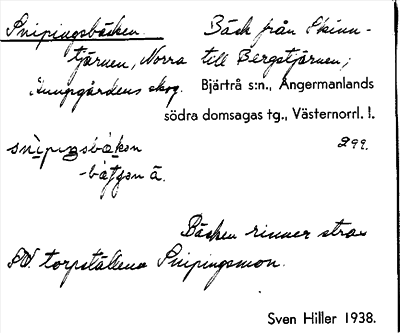 Snipingsbäcken. Bäck från Skinn-
tjärnen, Norra till Bergstjärnen;
skog. Bjärtrå s:n., Ångermanlands
södra domsagas tg., Västernorrl. l.
299.
Bäcken rinner strax
torpställena Snipingsmon.
Sven Hiller 1938.